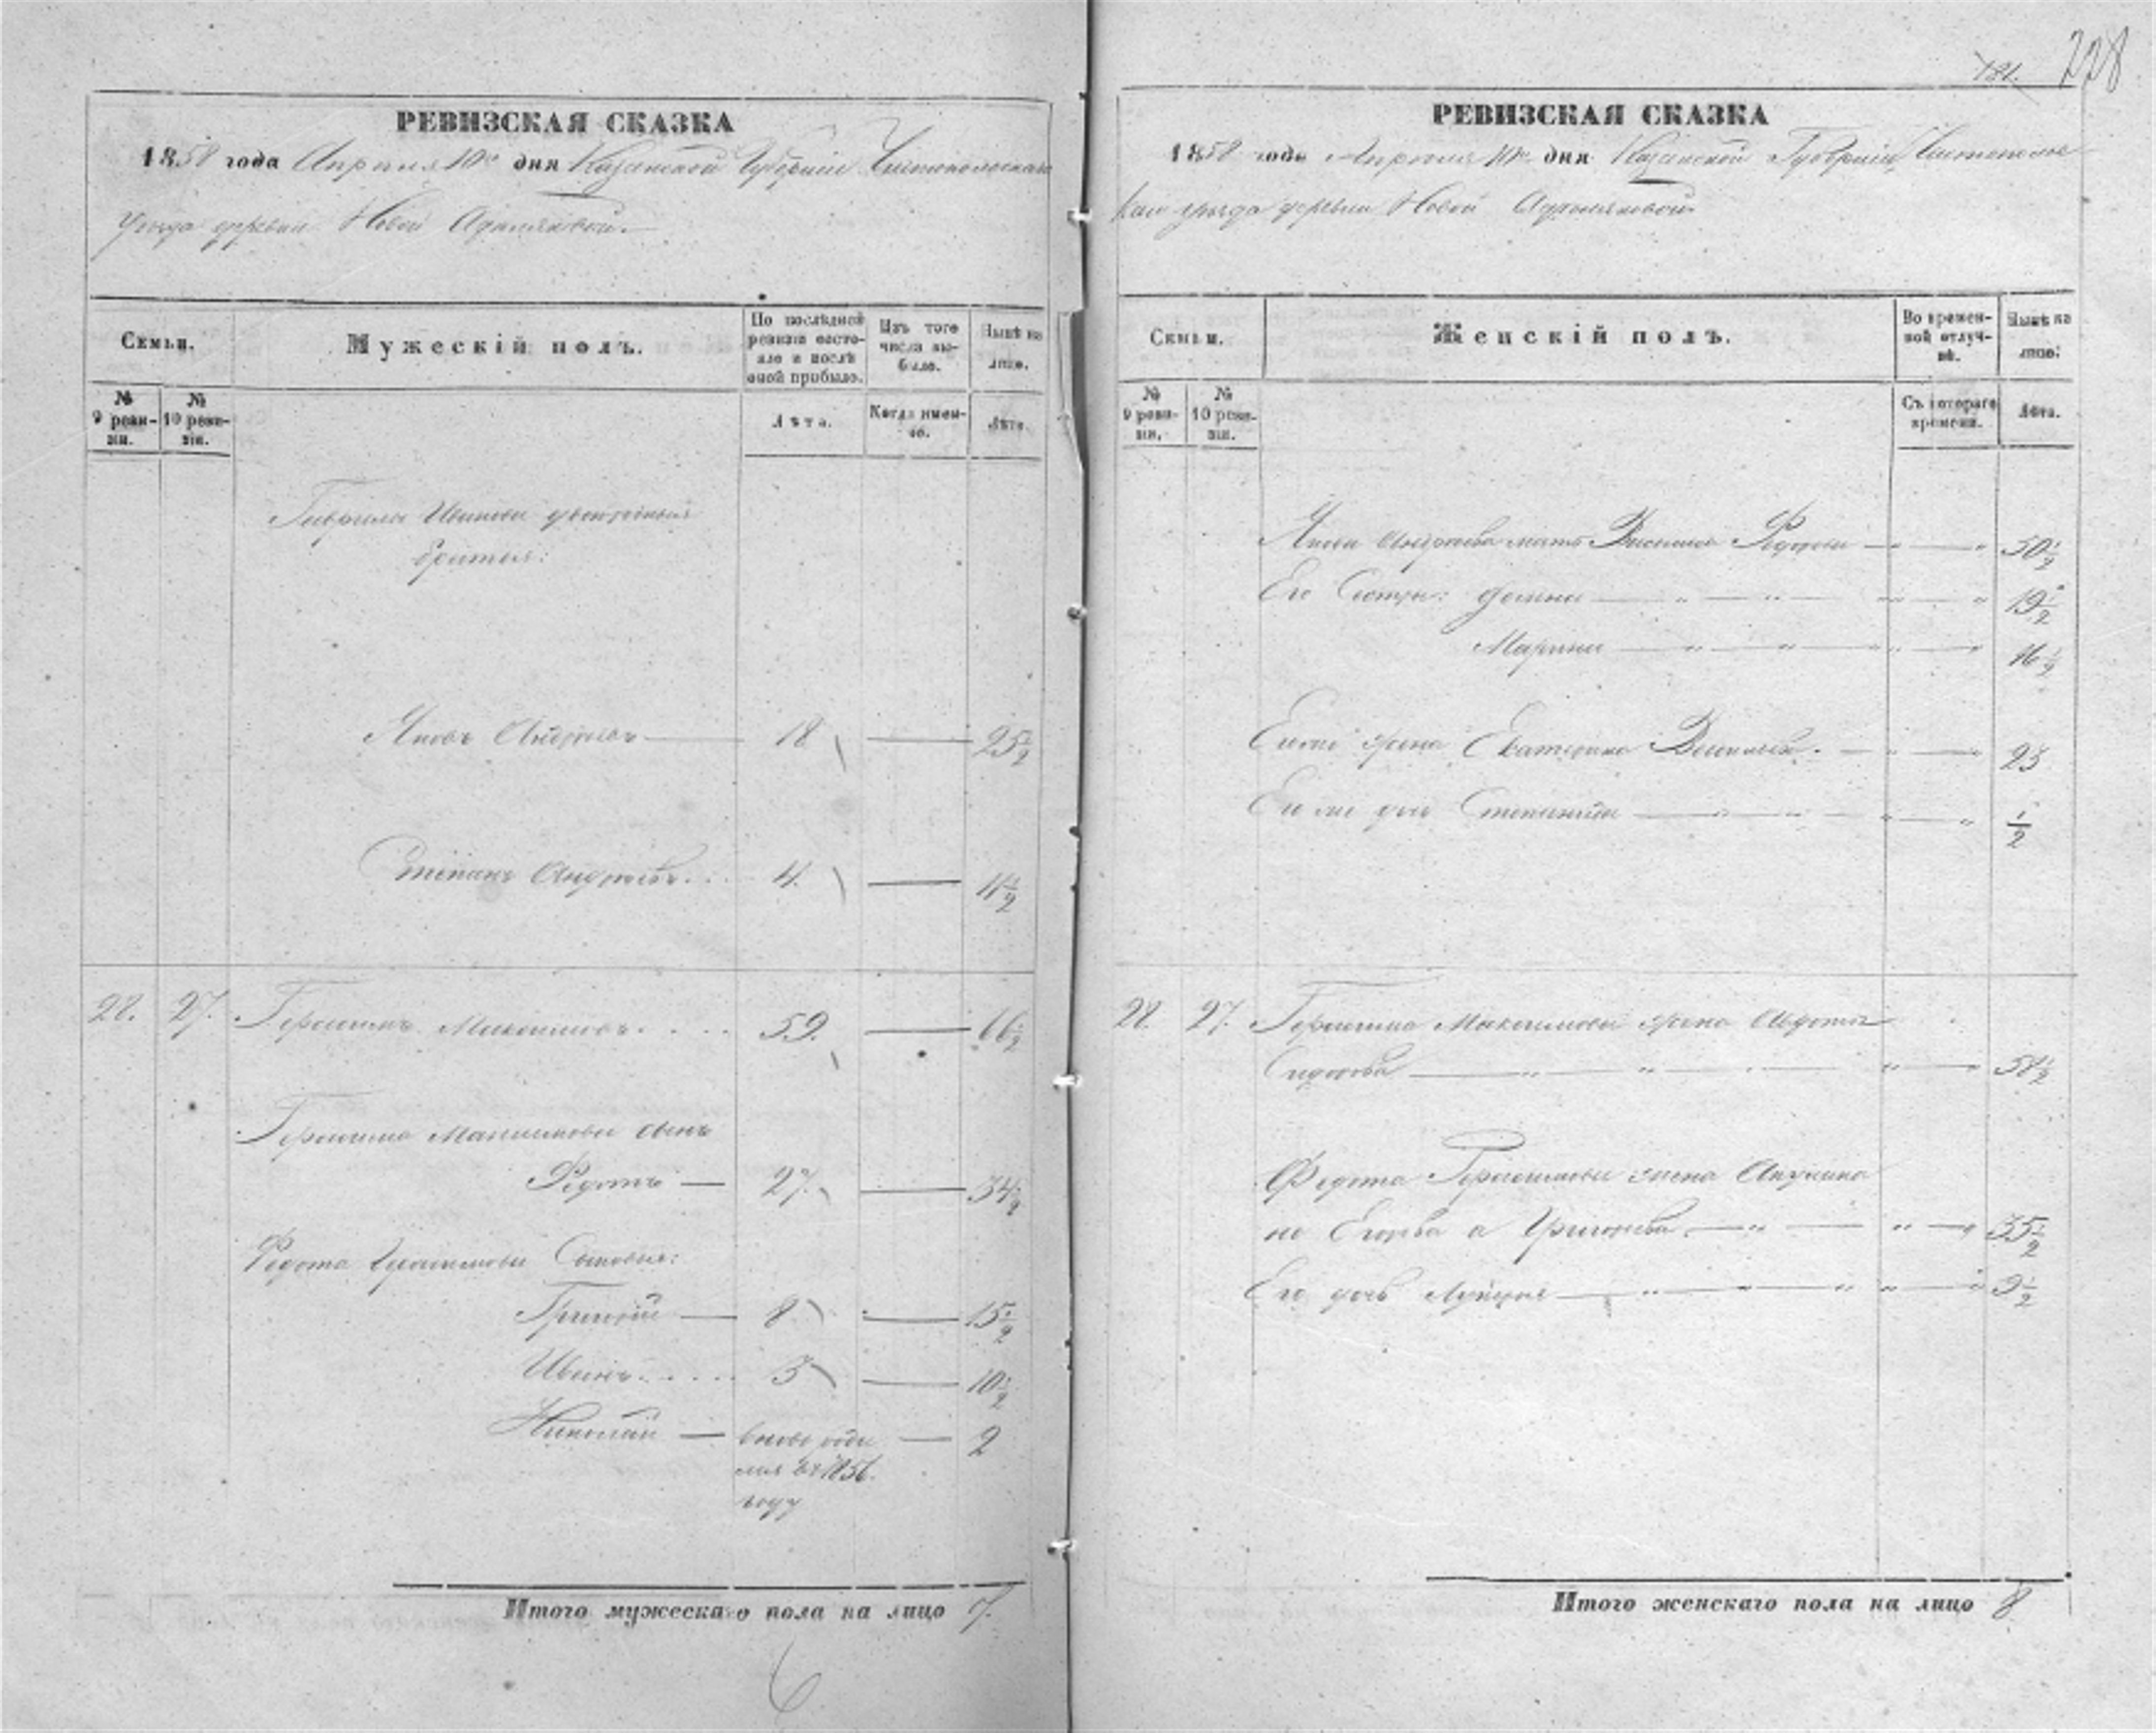 РЕВИЗСКАЯ СКАЗКА
1858 года Апреля 10го дня Казанской Губерніи Чистопольскаго
уезда деревни Новой
Семьи.
Мужескій полъ.
По послѣдней ревизіи состояло и послѣ оной прибыло.
Изъ того числа выбыло.
Нынѣ на лицо.
№ 9 ревизіи.
№ 10 ревизіи.
Лѣта.
Когда именно.
Лѣта.
Гаврилы Иванова двоюродныя
братья:
Яковъ Андреевъ 18 25½
Степанъ Андреевъ 4 11½
28. 27. Герасимъ Максимовъ 59. 66½
Герасима Максимова сынъ
Федотъ 27. 34½
Федота Герасимова Сыновья:
Григорій 8 15½
Иванъ 3 10½
Николай вновь роди 2
лся въ 1856.
году
Итого мужескаго пола на лицо 7.
6
181.
228
РЕВИЗСКАЯ СКАЗКА
1858 года Апреля 10го дня Казанской Губерніи, Чистопольс
каго уезда деревни Новой
Семьи.
Женскій полъ.
Во временной отлучкѣ.
Нынѣ на лицо:
№ 9 ревизіи.
№ 10 ревизіи.
Съ котораго времени.
Лѣта.
Якова Андреева мать Федорова 50½
Его Сестры: 19½
Марина 16½
жена Екатерина Васильева 23
дочь Степанида ½
28. 27. Герасима Максимова жена Авдотья
Сидорова 58½
Федота Герасимова жена Акулина
не Егорова а Григорьева 35½
Его дочь 9½
Итого женскаго пола на лицо 8